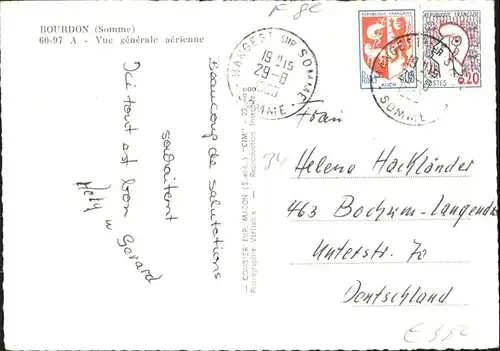 BOURDON (Somme)
60-97 A - Vue générale aérienne
F 80
HANGEST SUR SOMME
19 H 15
29-8
SOMME
REPUBLIQUE FRANÇAISE
0,05
AUCH
POSTES
REPUBLIQUE FRANÇAISE
0,20
POSTES
HANGEST SUR SOMME
SOMME
Beaucoup de salutations
souhaitent
Ici tout est bon
Hety u Gerard
COMBIER IMP. MACON (S.-et-L.) "CIM"
Photographie Véritable - Reproduction Interdite
34
Frau
Helene Hackländer
463 Bochum-Langendr
Unterstr. 70
Deutschland